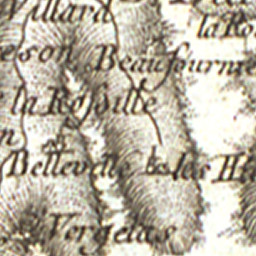 Villard
la Ro
eson Beaufournie
la Rossille
n
Bellevelle les Ha
Vergelas